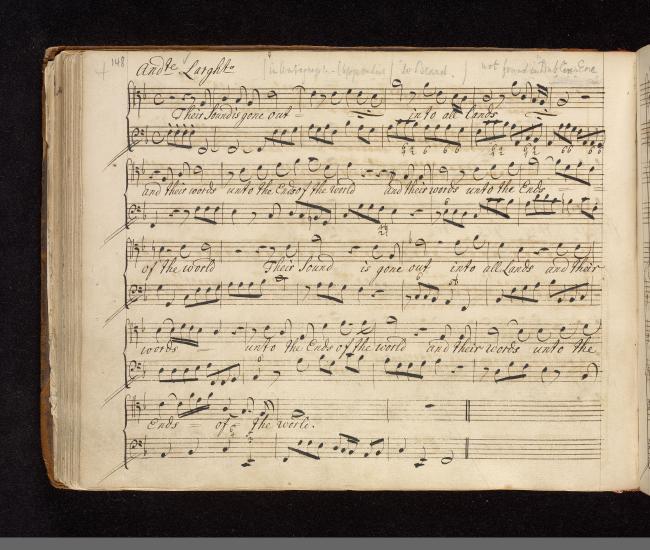 148
And.te Largh.to (in Autograph - (Appendix) to Beard.) not found in Dublin Score
Their Sound is gone out - into all Lands
and their words unto the Ends of the World and their words unto the Ends
of the world Their Sound is gone out into all Lands and their
words - unto the Ends of the world and their words unto the
Ends - of the world.